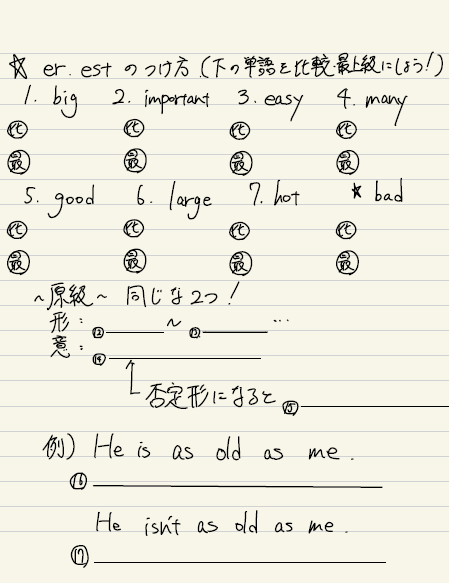 ☆ er. est のつけ方 (下の単語を比較・最上級にしよう!)
1. big 2. important 3. easy 4. many
比 比 比 比
最 最 最 最
5. good 6. large 7. hot ★ bad
比 比 比 比
最 最 最 最
~原級~ 同じな2つ!
形: ⑫ ~ ⑬ …
意: ⑭
否定形になると ⑮
例) He is as old as me.
⑯
He isn't as old as me.
⑰